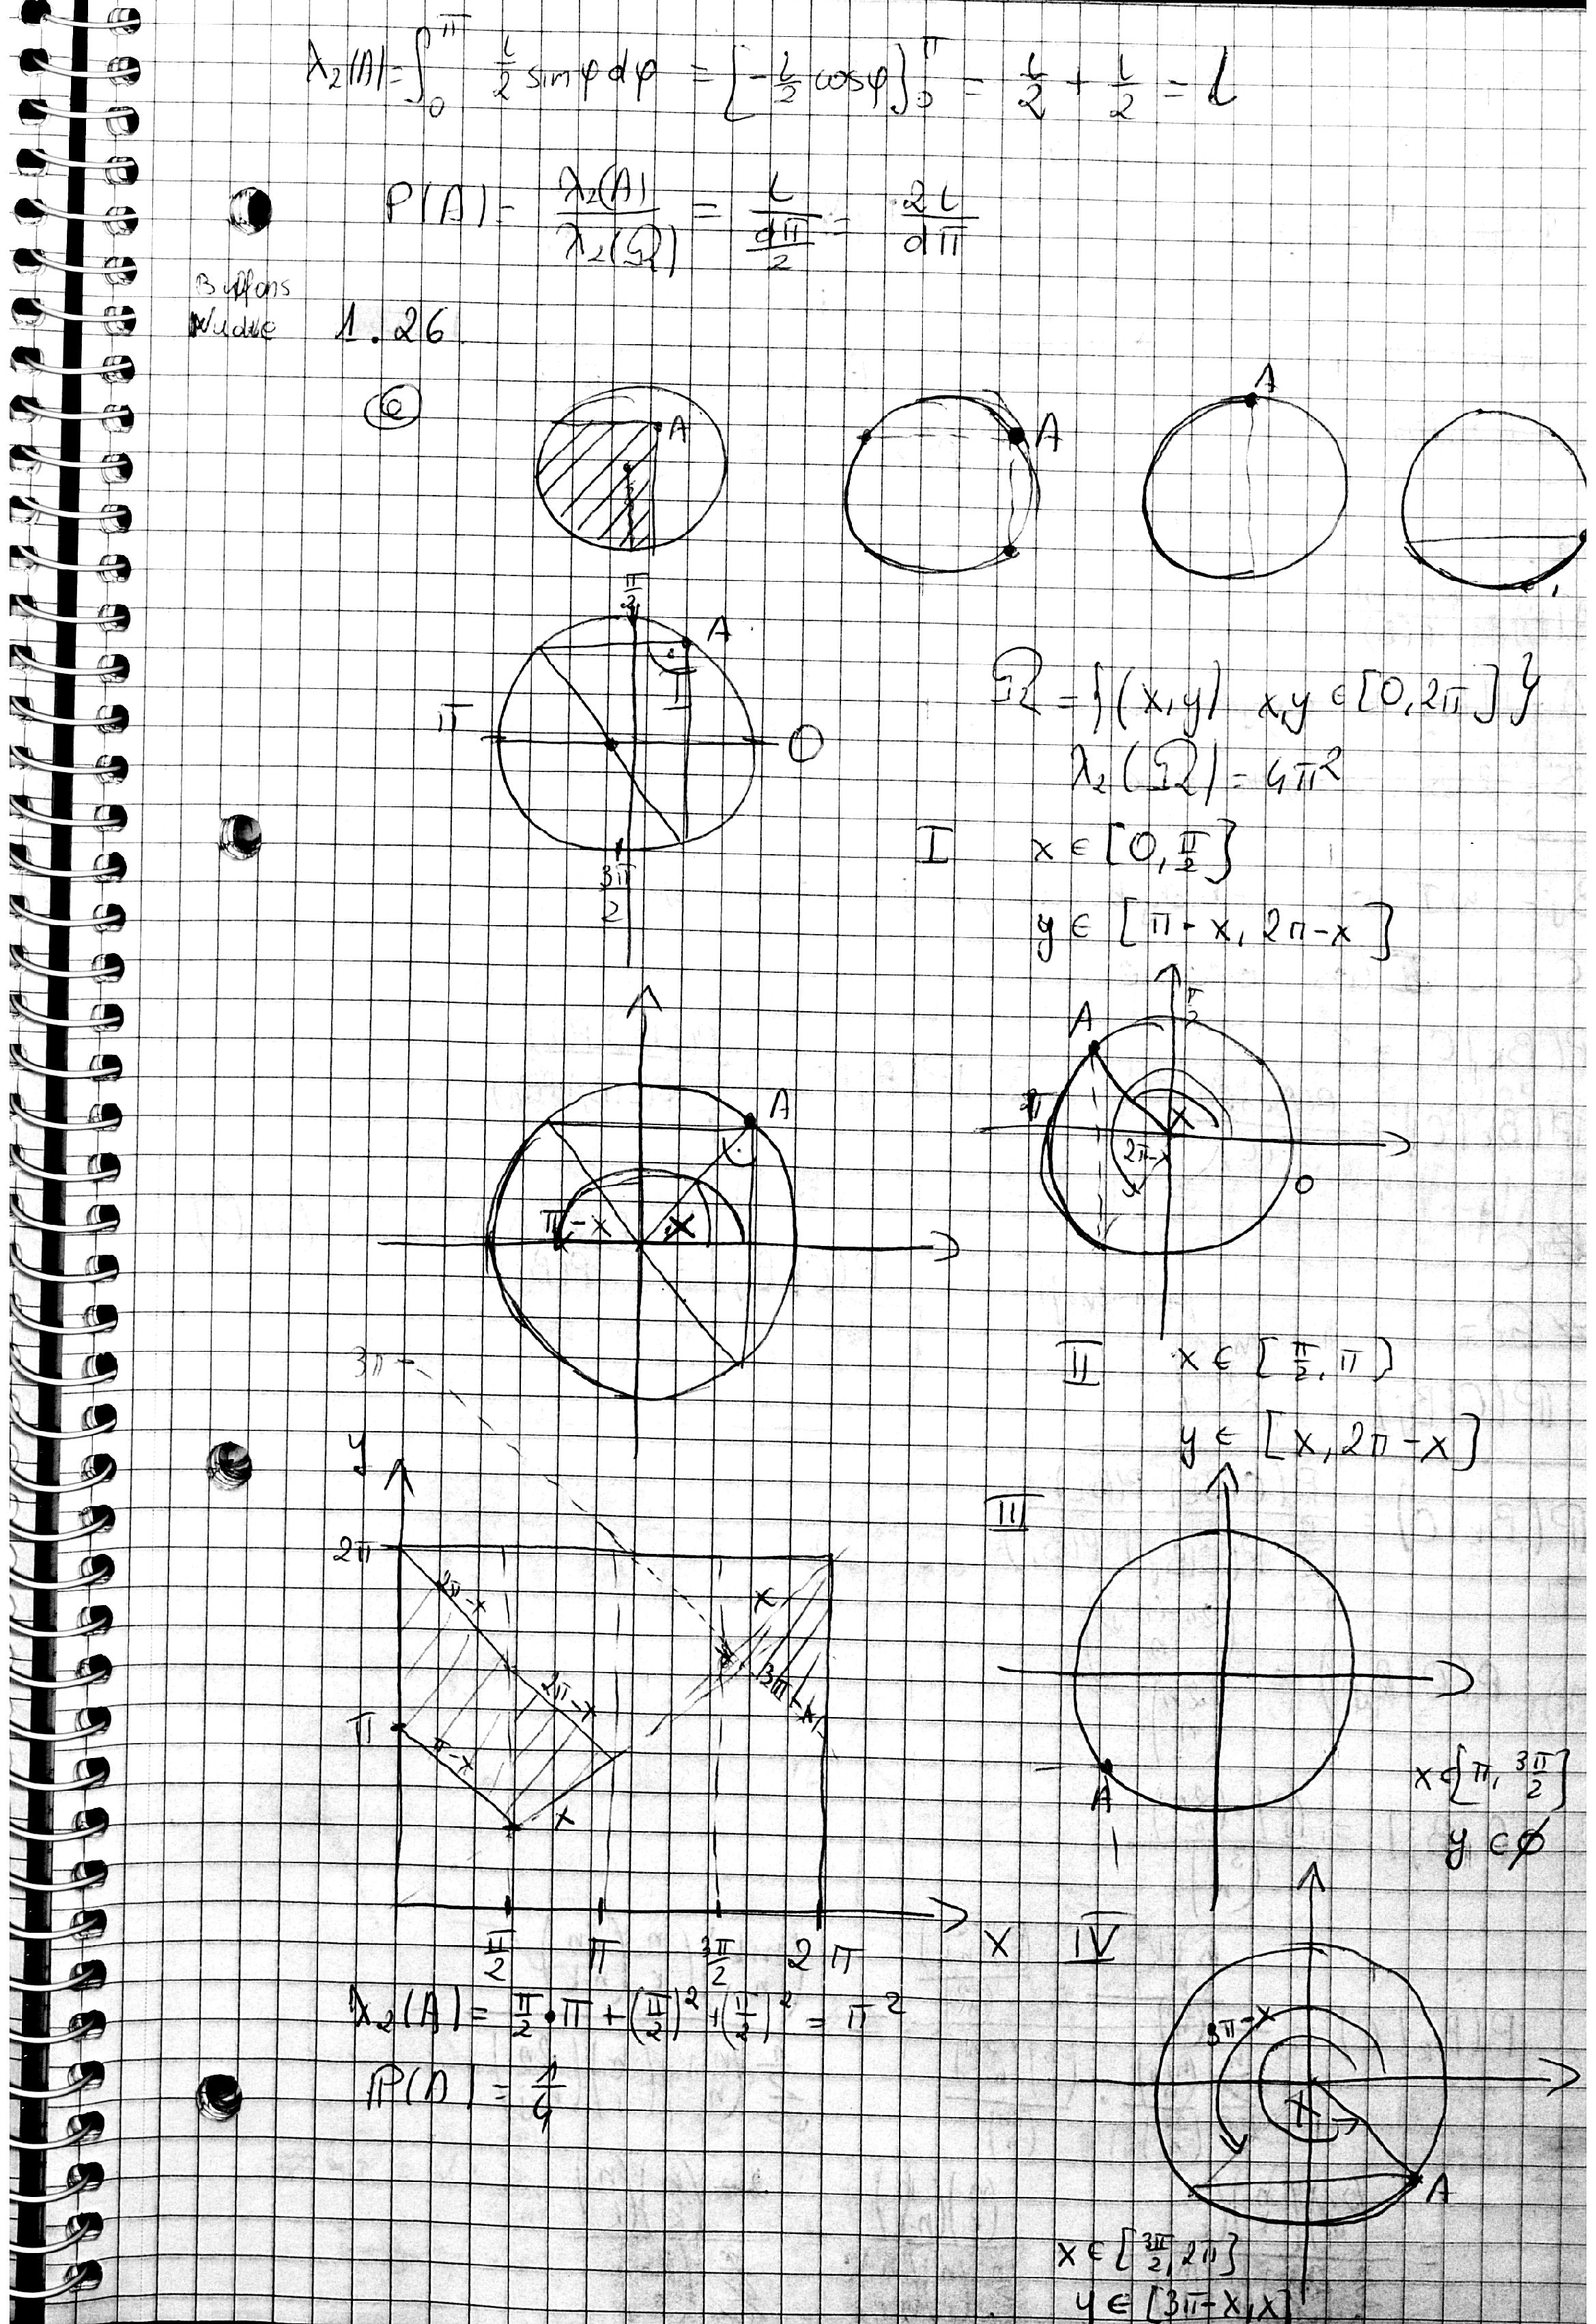 λ₂(A) = ∫₀^π l/2 sin φ dφ = [-l/2 cos φ]₀^π = l/2 + l/2 = l
P(A) = λ₂(A)/λ₂(Ω) = l/(dπ/2) = 2l/dπ
Buffons
1.26
A
A
A
π/2
A
π
0
3π/2
Ω = {(x,y) x,y ∈ [0,2π]}
λ₂(Ω) = 4π²
I x ∈ [0, π/2]
y ∈ [π-x, 2π-x]
A
π-x
x
A
π/2
π
x
2π-x
0
II x ∈ [π/2, π]
y ∈ [x, 2π-x]
3π
y
2π
2π-x
2π-x
x
3π-x
π
π-x
x
π/2 π 3π/2 2π x
III
A
x ∈ [π, 3π/2]
y ∈ ∅
λ₂(A) = π/2 · π + (π/2)² + (π/2)² = π²
P(A) = 1/4
IV
3π-x
x
A
x ∈ [3π/2, 2π]
y ∈ [3π-x, x]